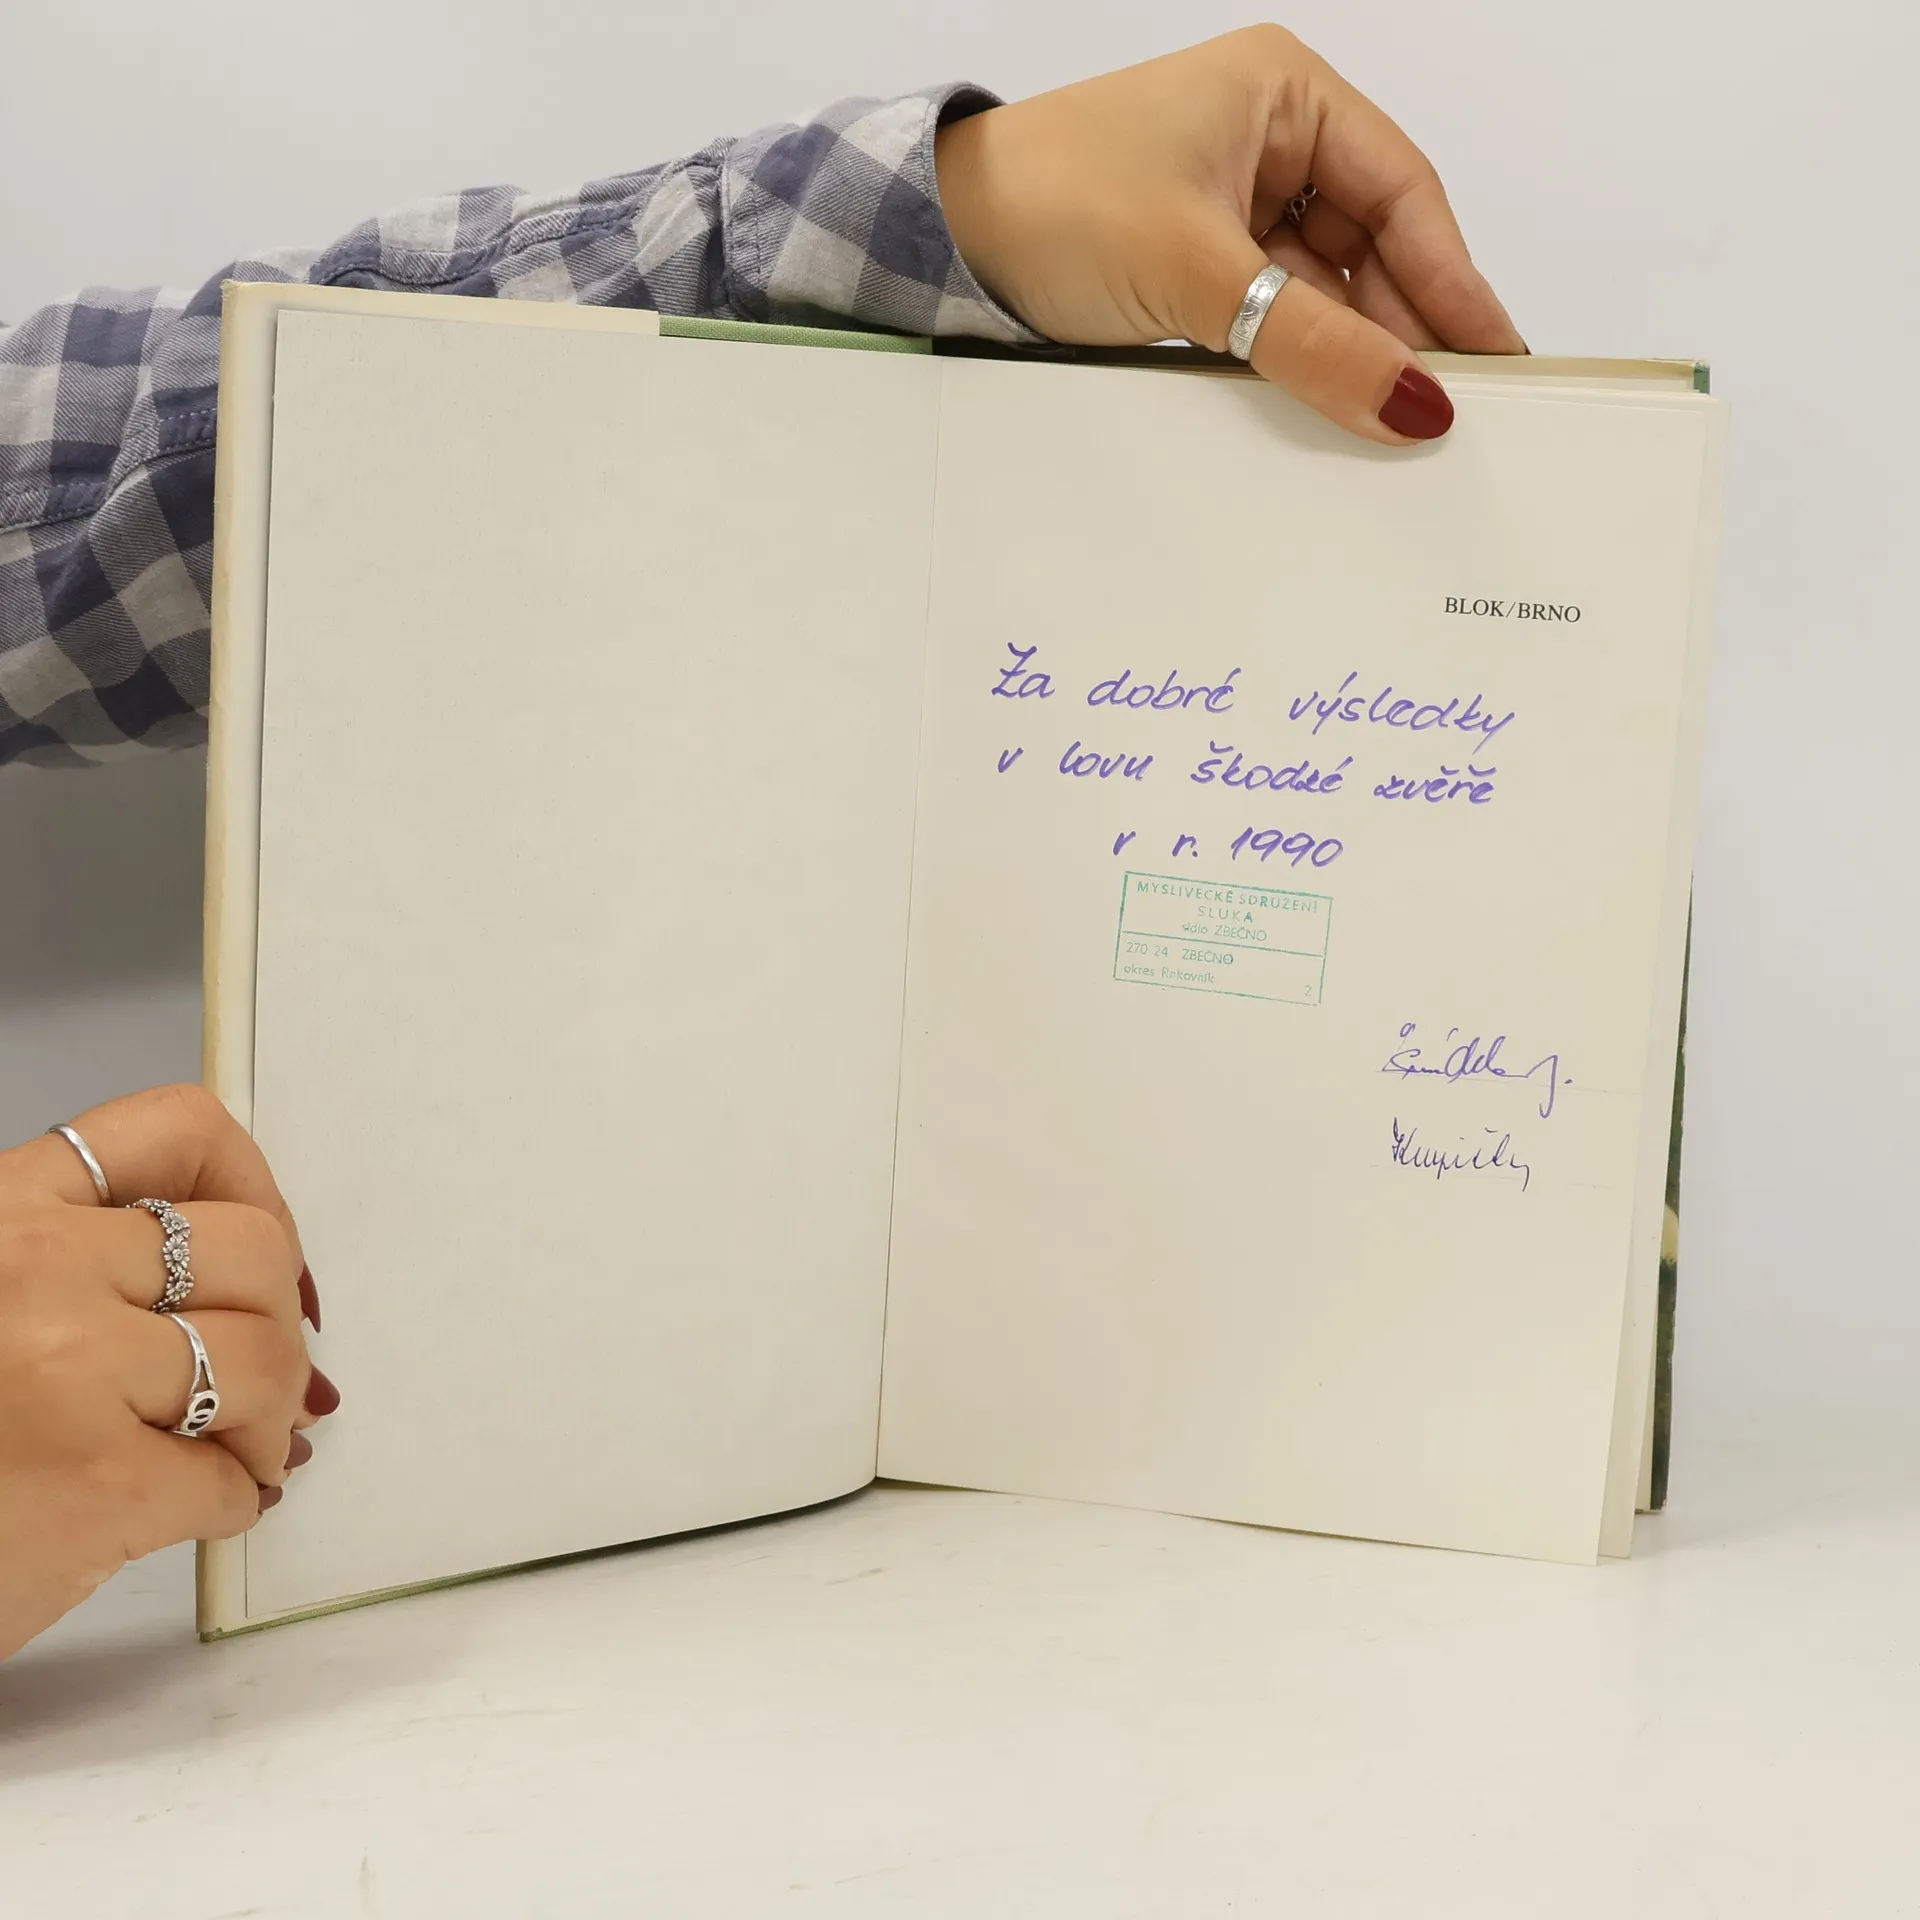 BLOK/BRNO
Za dobré výsledky
v lovu škodné zvěře
v r. 1990
MYSLIVECKÉ SDRUŽENÍ
SLUKA
sídlo ZBEČNO
270 24 ZBEČNO
okres Rakovník
2